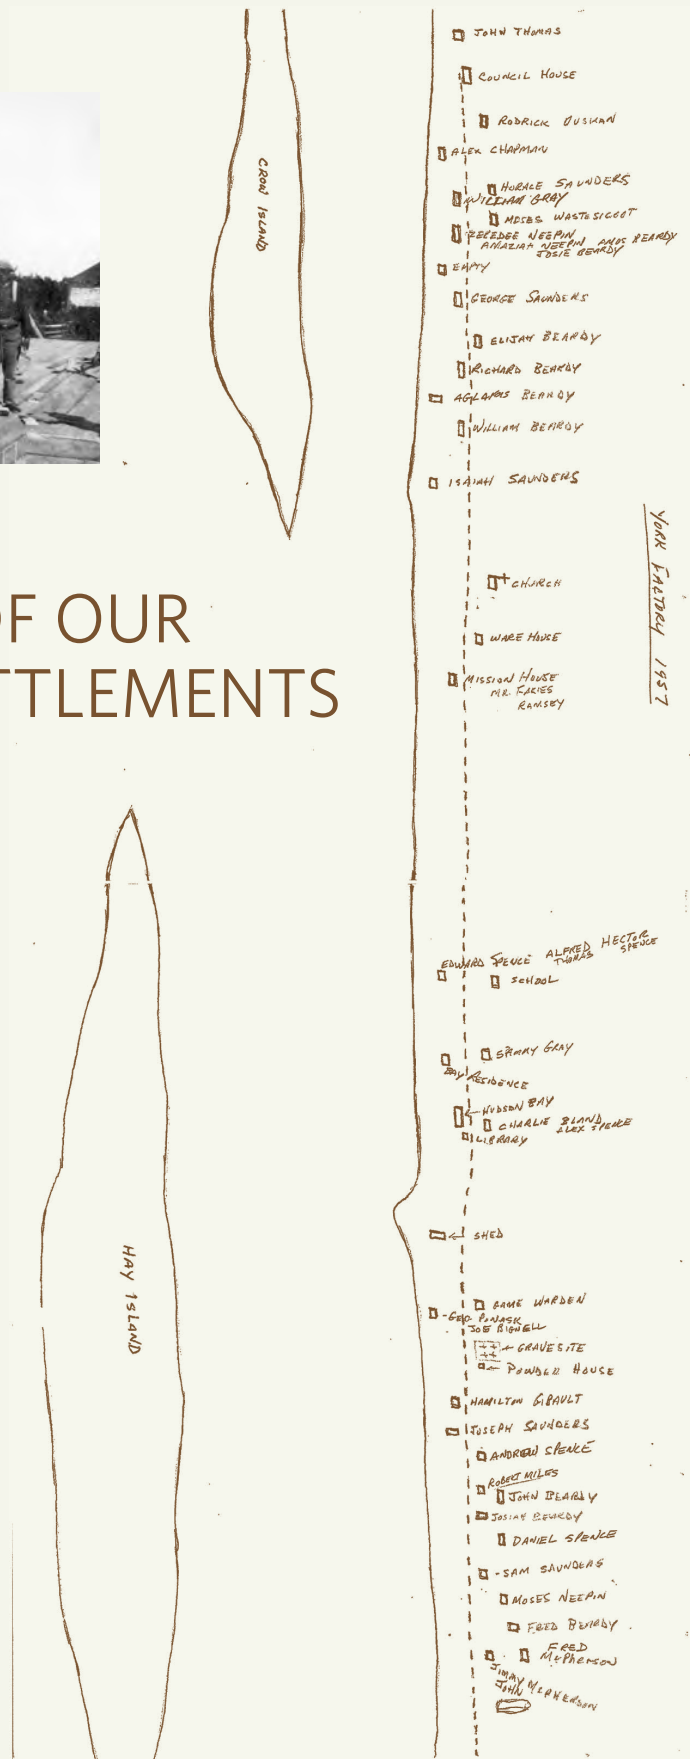 JOHN THOMAS
COUNCIL HOUSE
RODRICK OUSKAN
ALEX CHAPMAN
HORACE SAUNDERS
WILLIAM GRAY
MOSES WASTESICOOT
ZEPEDEE NEEPIN
AMAZIAH NEEPIN AMOS BEARDY
JOSIE BEARDY
EMPTY
GEORGE SAUNDERS
ELIJAH BEARDY
RICHARD BEARDY
BEARDY
WILLIAM BEARDY
ISAIAH SAUNDERS
CROW ISLAND
YORK FACTORY 1957
CHURCH
OF OUR
WARE HOUSE
TTLEMENTS
MISSION HOUSE
MR. FARIES
RAMSEY
EDWARD SPENCE ALFRED THOMAS HECTOR SPENCE
SCHOOL
SAMMY GRAY
BAY RESIDENCE
HUDSON BAY
CHARLIE BLAND
ALEX SPENCE
LIBRARY
SHED
HAY ISLAND
GAME WARDEN
GEO PONASK
JOE BIGNELL
GRAVESITE
POWDER HOUSE
HAMILTON GIBAULT
JOSEPH SAUNDERS
ANDREW SPENCE
ROBERT MILES
JOHN BEARDY
JOSIAH BEARDY
DANIEL SPENCE
-SAM SAUNDERS
MOSES NEEPIN
FRED BEARDY
FRED
McPHERSON
JIMMY McPHERSON
JOHN